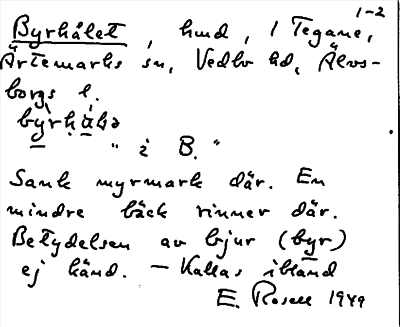 1-2
Byrhålet, hmd, i Tegane,
Ärtemarks sn, Vedbo hd, Älvs-
borgs l.
byrhålə
" i B. "
Sank myrmark där. En
mindre bäck rinner där.
Betydelsen av bjur (byr)
ej känd. — Kallas ibland
E. Rosell 1949